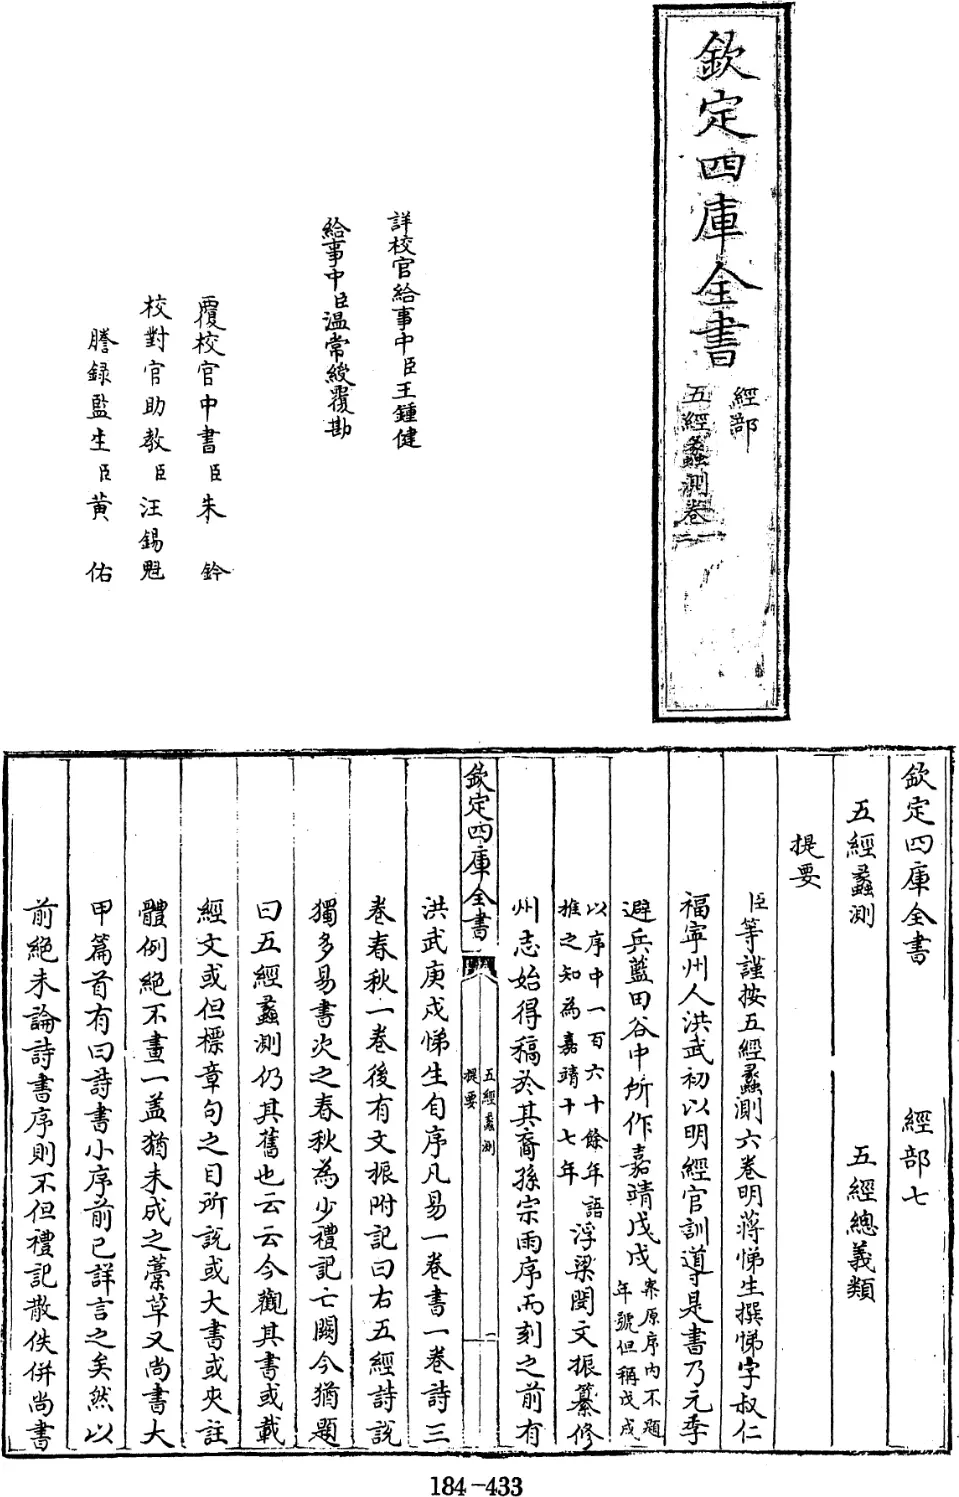 欽定四庫全書
經部
五經蠡測卷一
詳校官給事中臣王鍾健
給事中臣温常綬覆勘
覆校官中書臣朱鈐
校對官助教臣汪錫魁
謄録監生臣黄佑
欽定四庫全書 經部七
五經蠡測 五經總義類
提要
臣等謹按五經蠡測六卷明蔣悌生撰悌字叔仁
福寜州人洪武初以明經官訓導是書乃元季
避兵藍田谷中所作嘉靖戊戌案原序内不題年號但稱戊戌
以序中一百六十餘年語推之知為嘉靖十七年浮梁閔文振纂修
州志始得稿於其裔孫宗雨序而刻之前有
欽定四庫全書
五經蠡測
提要
一
洪武庚戌悌生自序凡易一卷書一卷詩三
巻春秋一巻後有文振附記曰右五經詩說
獨多易書次之春秋為少禮記亡闕今猶題
曰五經蠡測仍其舊也云云今觀其書或載
經文或但標章句之目所說或大書或夾註
體例絶不畫一盖猶未成之藁草又尚書大
甲篇首有曰詩書小序前已詳言之矣然以
前絶未論詩書序則不但禮記散佚併尚書
184-433